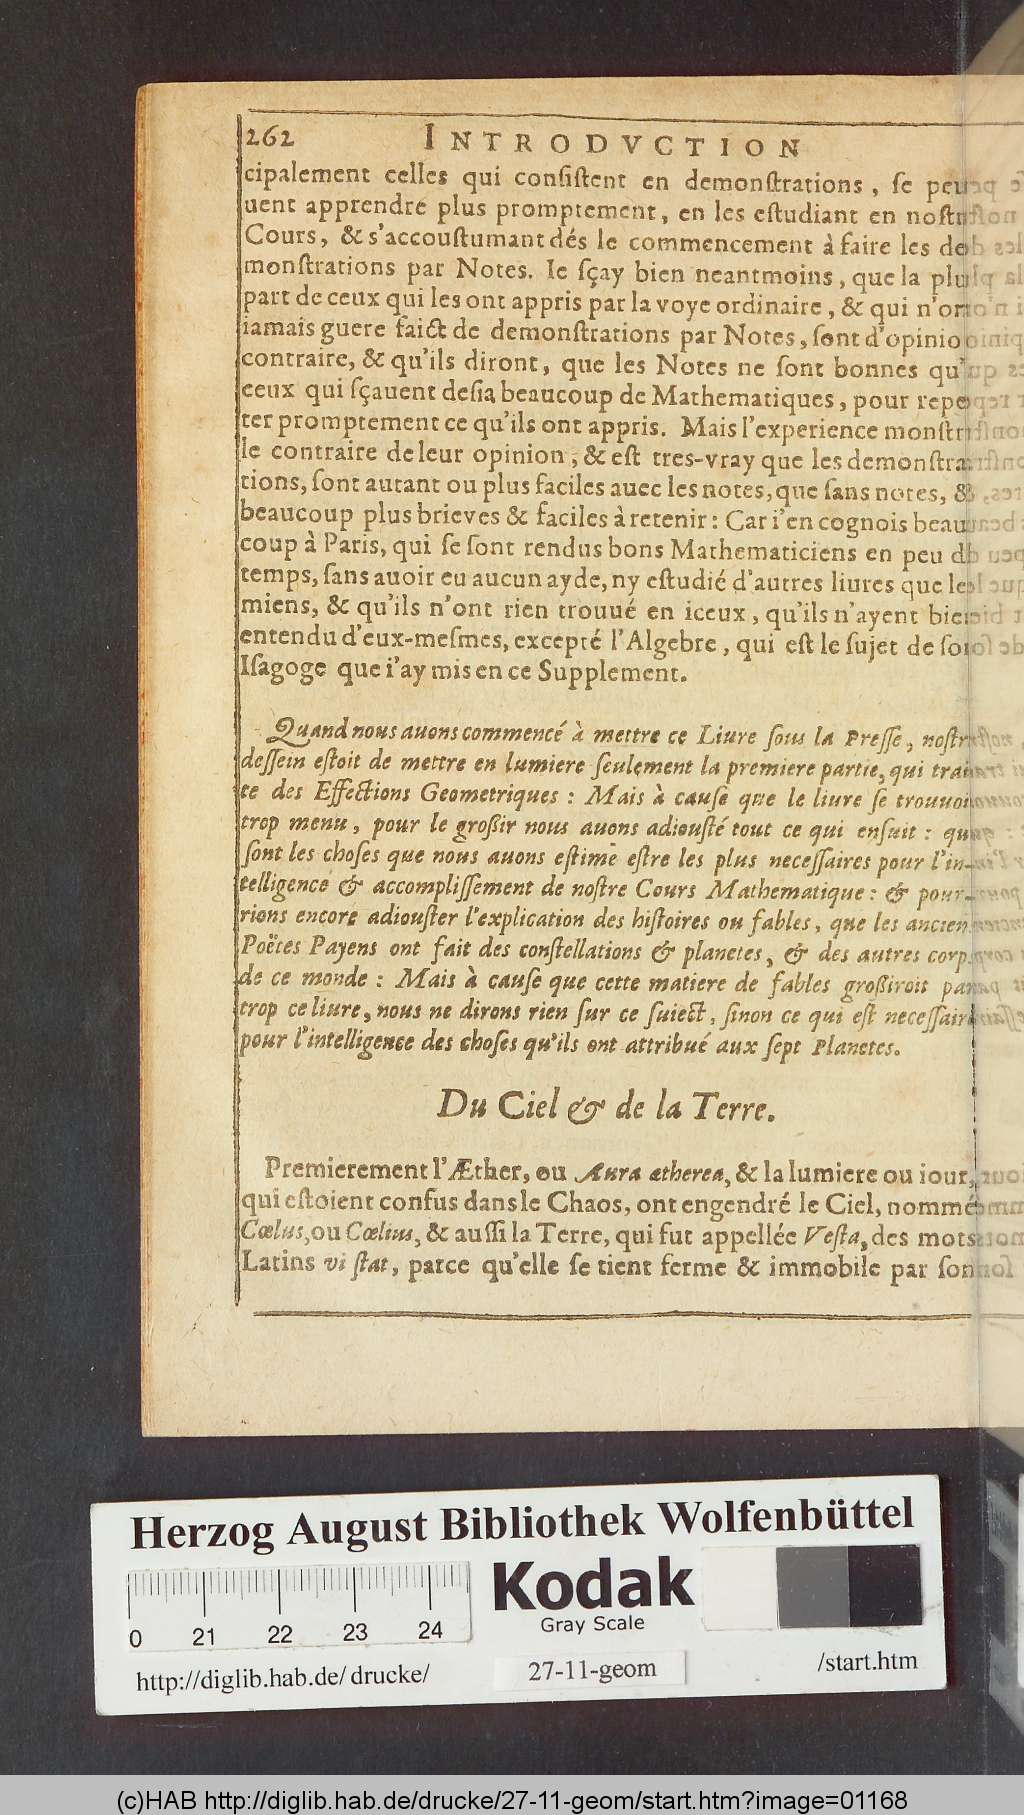 262 INTRODVCTION
cipalement celles qui conſiſtent en demonſtrations, ſe peu
uent apprendre plus promptement, en les eſtudiant en noſtr
Cours, & s'accouſtumant dés le commencement à faire les de
monſtrations par Notes. Ie ſçay bien neantmoins, que la pluſ
part de ceux qui les ont appris par la voye ordinaire, & qui n'o
iamais guere faict de demonſtrations par Notes, ſont d'opinio
contraire, & qu'ils diront, que les Notes ne ſont bonnes qu'
ceux qui ſçauent deſia beaucoup de Mathematiques, pour repe
ter promptement ce qu'ils ont appris. Mais l'experience monſtr
le contraire de leur opinion, & eſt tres-vray que les demonſtra
tions, ſont autant ou plus faciles auec les notes, que ſans notes, &
beaucoup plus brieves & faciles à retenir: Car i'en cognois beau
coup à Paris, qui ſe ſont rendus bons Mathematiciens en peu d
temps, ſans auoir eu aucun ayde, ny eſtudié d'autres liures que le
miens, & qu'ils n'ont rien trouué en iceux, qu'ils n'ayent bie
entendu d'eux-meſmes, excepté l'Algebre, qui eſt le ſujet de ſo
Iſagoge que i'ay mis en ce Supplement.
Quand nous auons commencé à mettre ce Liure ſous la Preſſe, noſtr
deſſein eſtoit de mettre en lumiere ſeulement la premiere partie, qui trai
te des Effections Geometriques: Mais à cauſe que le liure ſe trouuoi
trop menu, pour le groſſir nous auons adiouſté tout ce qui enſuit: qu
ſont les choſes que nous auons eſtimé eſtre les plus neceſſaires pour l'in-
telligence & accompliſſement de noſtre Cours Mathematique: & pour-
rions encore adiouſter l'explication des hiſtoires ou fables, que les ancien
Poëtes Payens ont fait des conſtellations & planetes, & des autres corp
de ce monde: Mais à cauſe que cette matiere de fables groſſiroit pa
trop ce liure, nous ne dirons rien ſur ce ſuiect, ſinon ce qui eſt neceſſair
pour l'intelligence des choſes qu'ils ont attribué aux ſept Planetes.
Du Ciel & de la Terre.
Premierement l'Æther, ou Aura ætherea, & la lumiere ou iour,
qui eſtoient confus dans le Chaos, ont engendré le Ciel, nommé
Cœlus, ou Cœlius, & auſſi la Terre, qui fut appellée Veſta, des mots
Latins vi ſtat, parce qu'elle ſe tient ferme & immobile par ſon
Herzog August Bibliothek Wolfenbüttel
Kodak
Gray Scale
0 21 22 23 24
http://diglib.hab.de/drucke/ 27-11-geom /start.htm
(c)HAB http://diglib.hab.de/drucke/27-11-geom/start.htm?image=01168